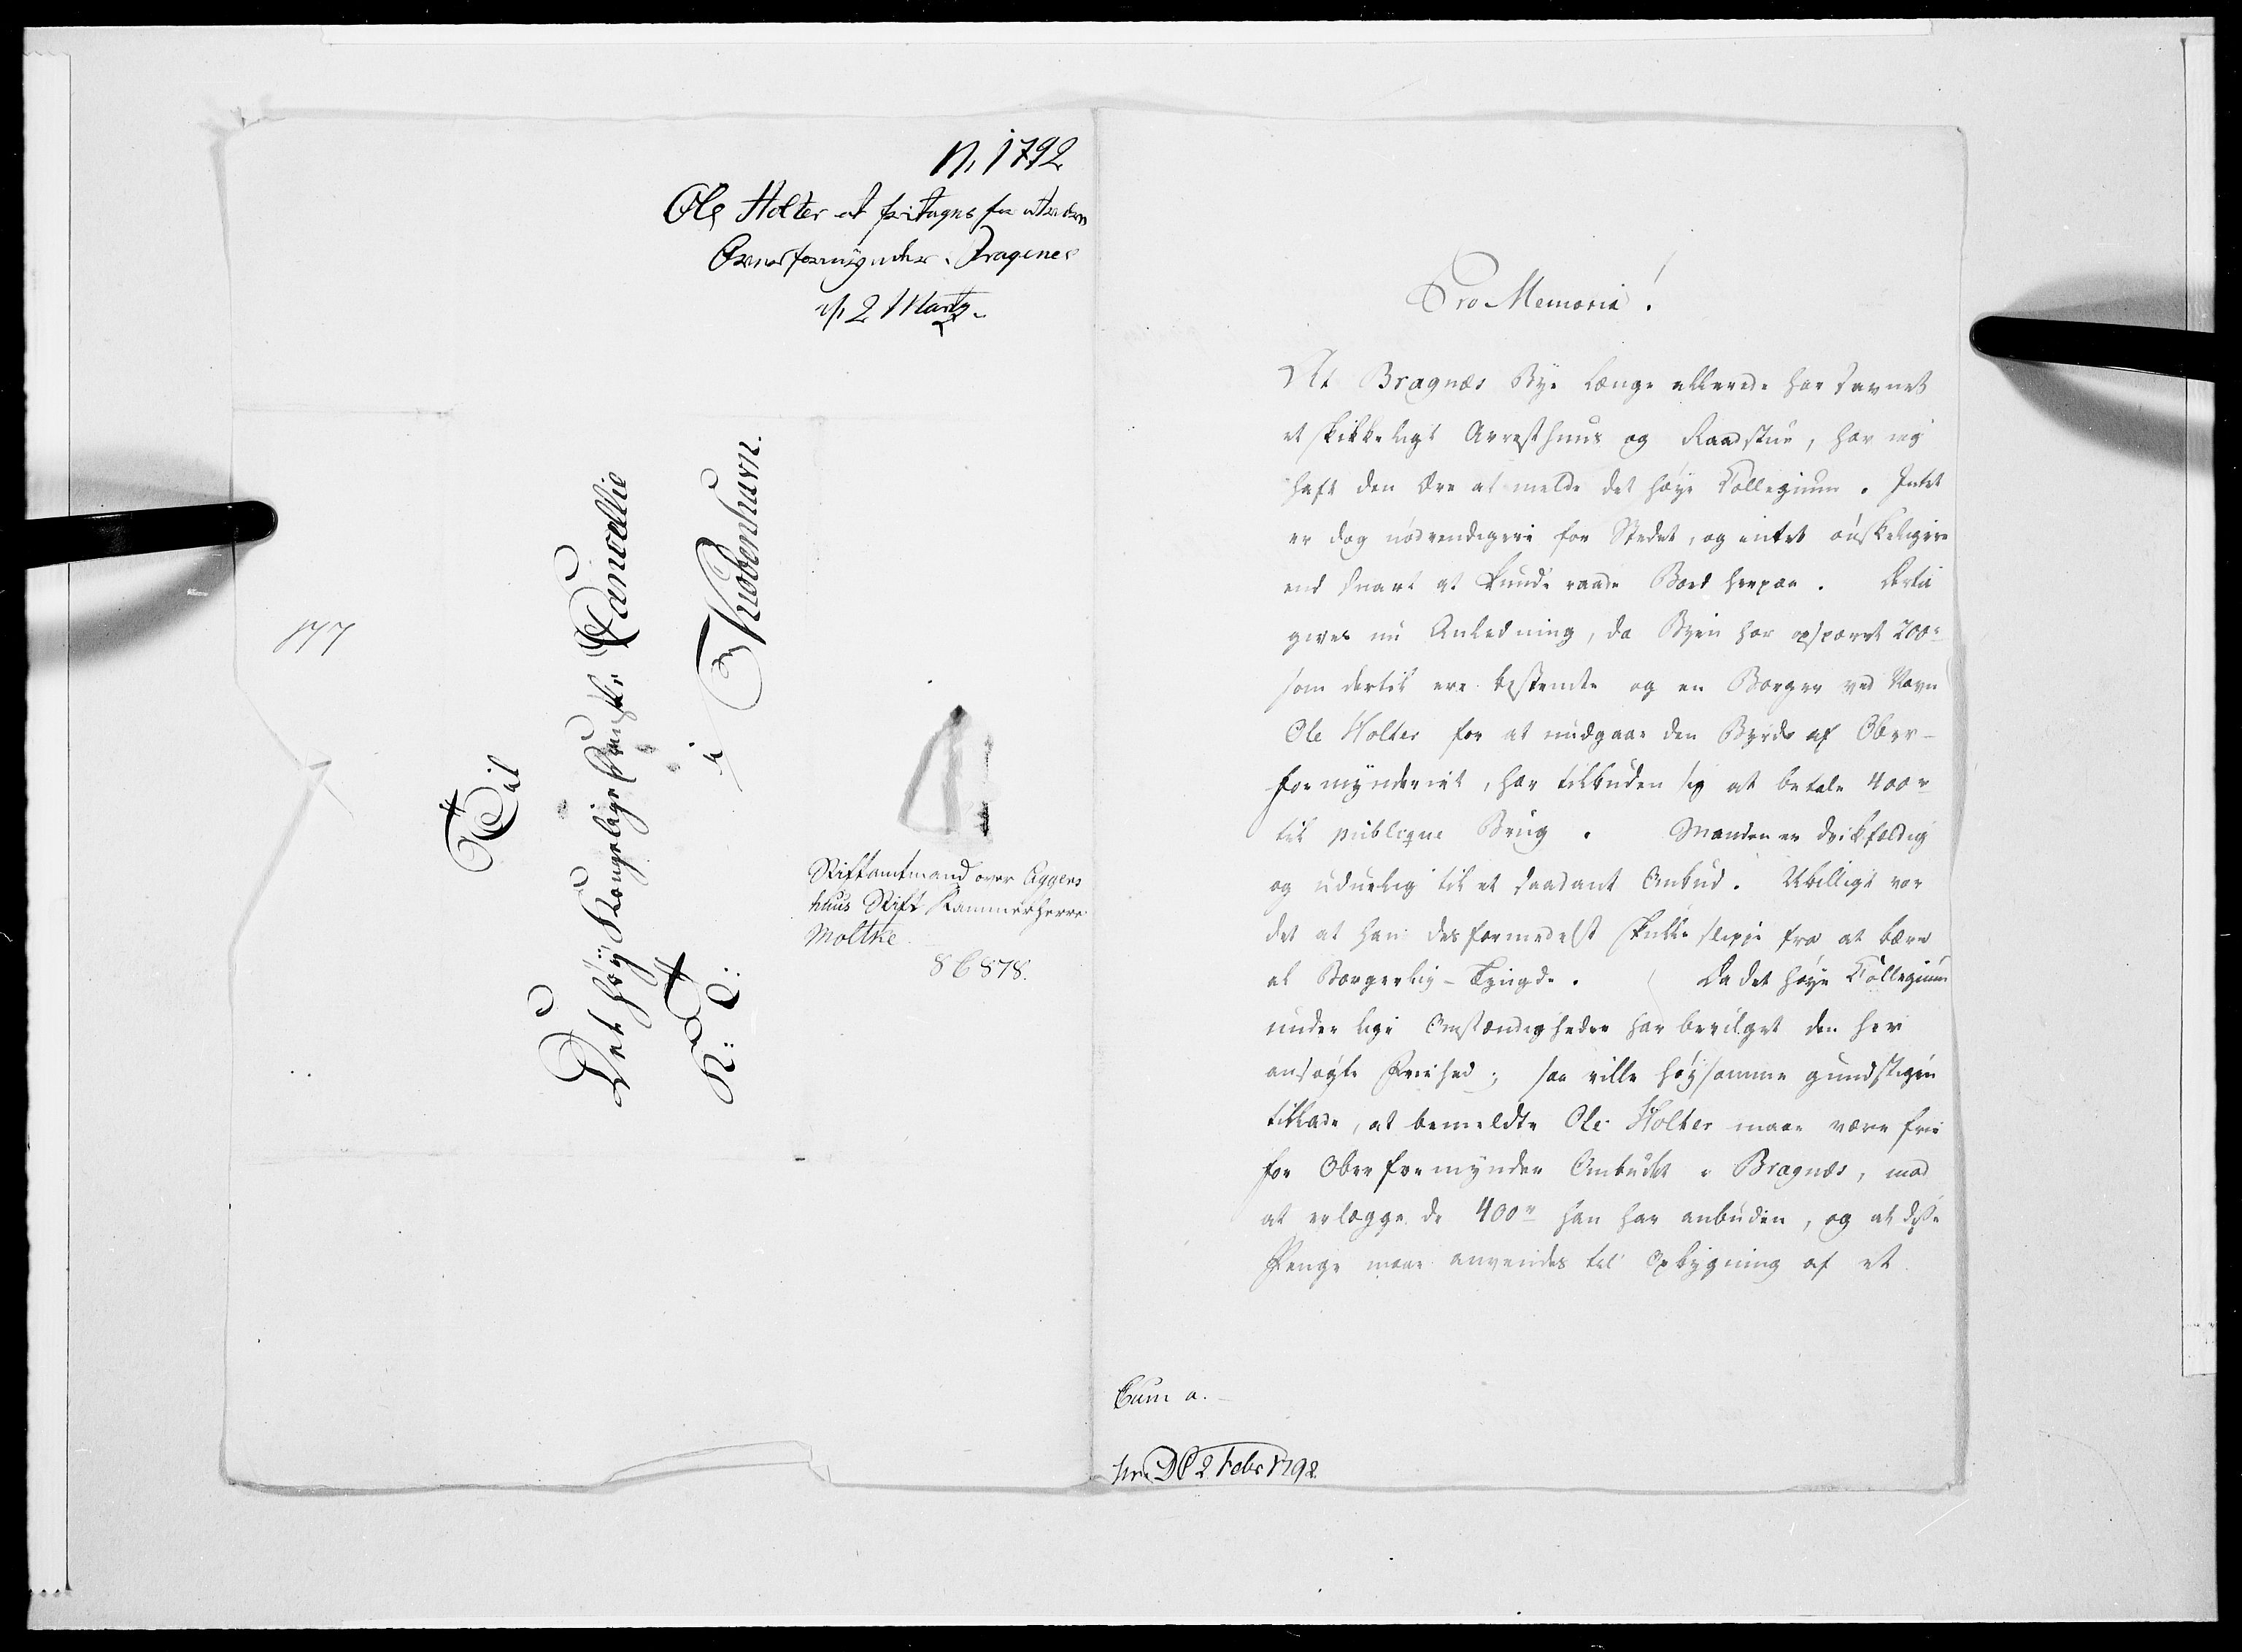 N. 1792
Ole Holter at fritages for at være
Overformynder i Bragenes
2 Martz
177
Til
Det høy Kongelige Danske Cancellie
i Kiøbenhavn.
K: T:
Stiftamtmand over Aggers
huus Stift Kammerherre
Moltke
86878.
Pro Memoria!
At Bragnæs Bye længe allerede har savnet
et skikkeligt Arresthuus og Raadstue, har jeg
haft den Ære at melde det høye Collegium. Intet
er dog nødvendigere for Stedet, og intet ønskeligere
end snart at kunde raade Bod herpaa. Dertil
gives nu Anledning, da Byen har opsparet 200 rd
som dertil ere bestemte og en Borger ved Navn
Ole Holter for at undgaae den Byrde af Over-
formynderiet, har tilbuden sig at betale 400 rd
til publiqve Brug. Manden er Eenfoldig
og uduelig til et saadant Ombud. Ubilligt var
det at han desformedelst skulle slippe fra at bære
al Borgerlig-Tyngde. Da det høye Collegium
under lige Omstændigheder har bevilget den her
ansøgte Friehed; saa ville høysamme gundstigen
tillade, at bemeldte Ole Holter maae være frie
for Overformynder Ombudet i Bragnæs, mod
at erlægge de 400 rd han har anbuden, og at disse
Penge maae anvendes til Opbygning af et
Cum a.
pr: DC 2 Febr 1792